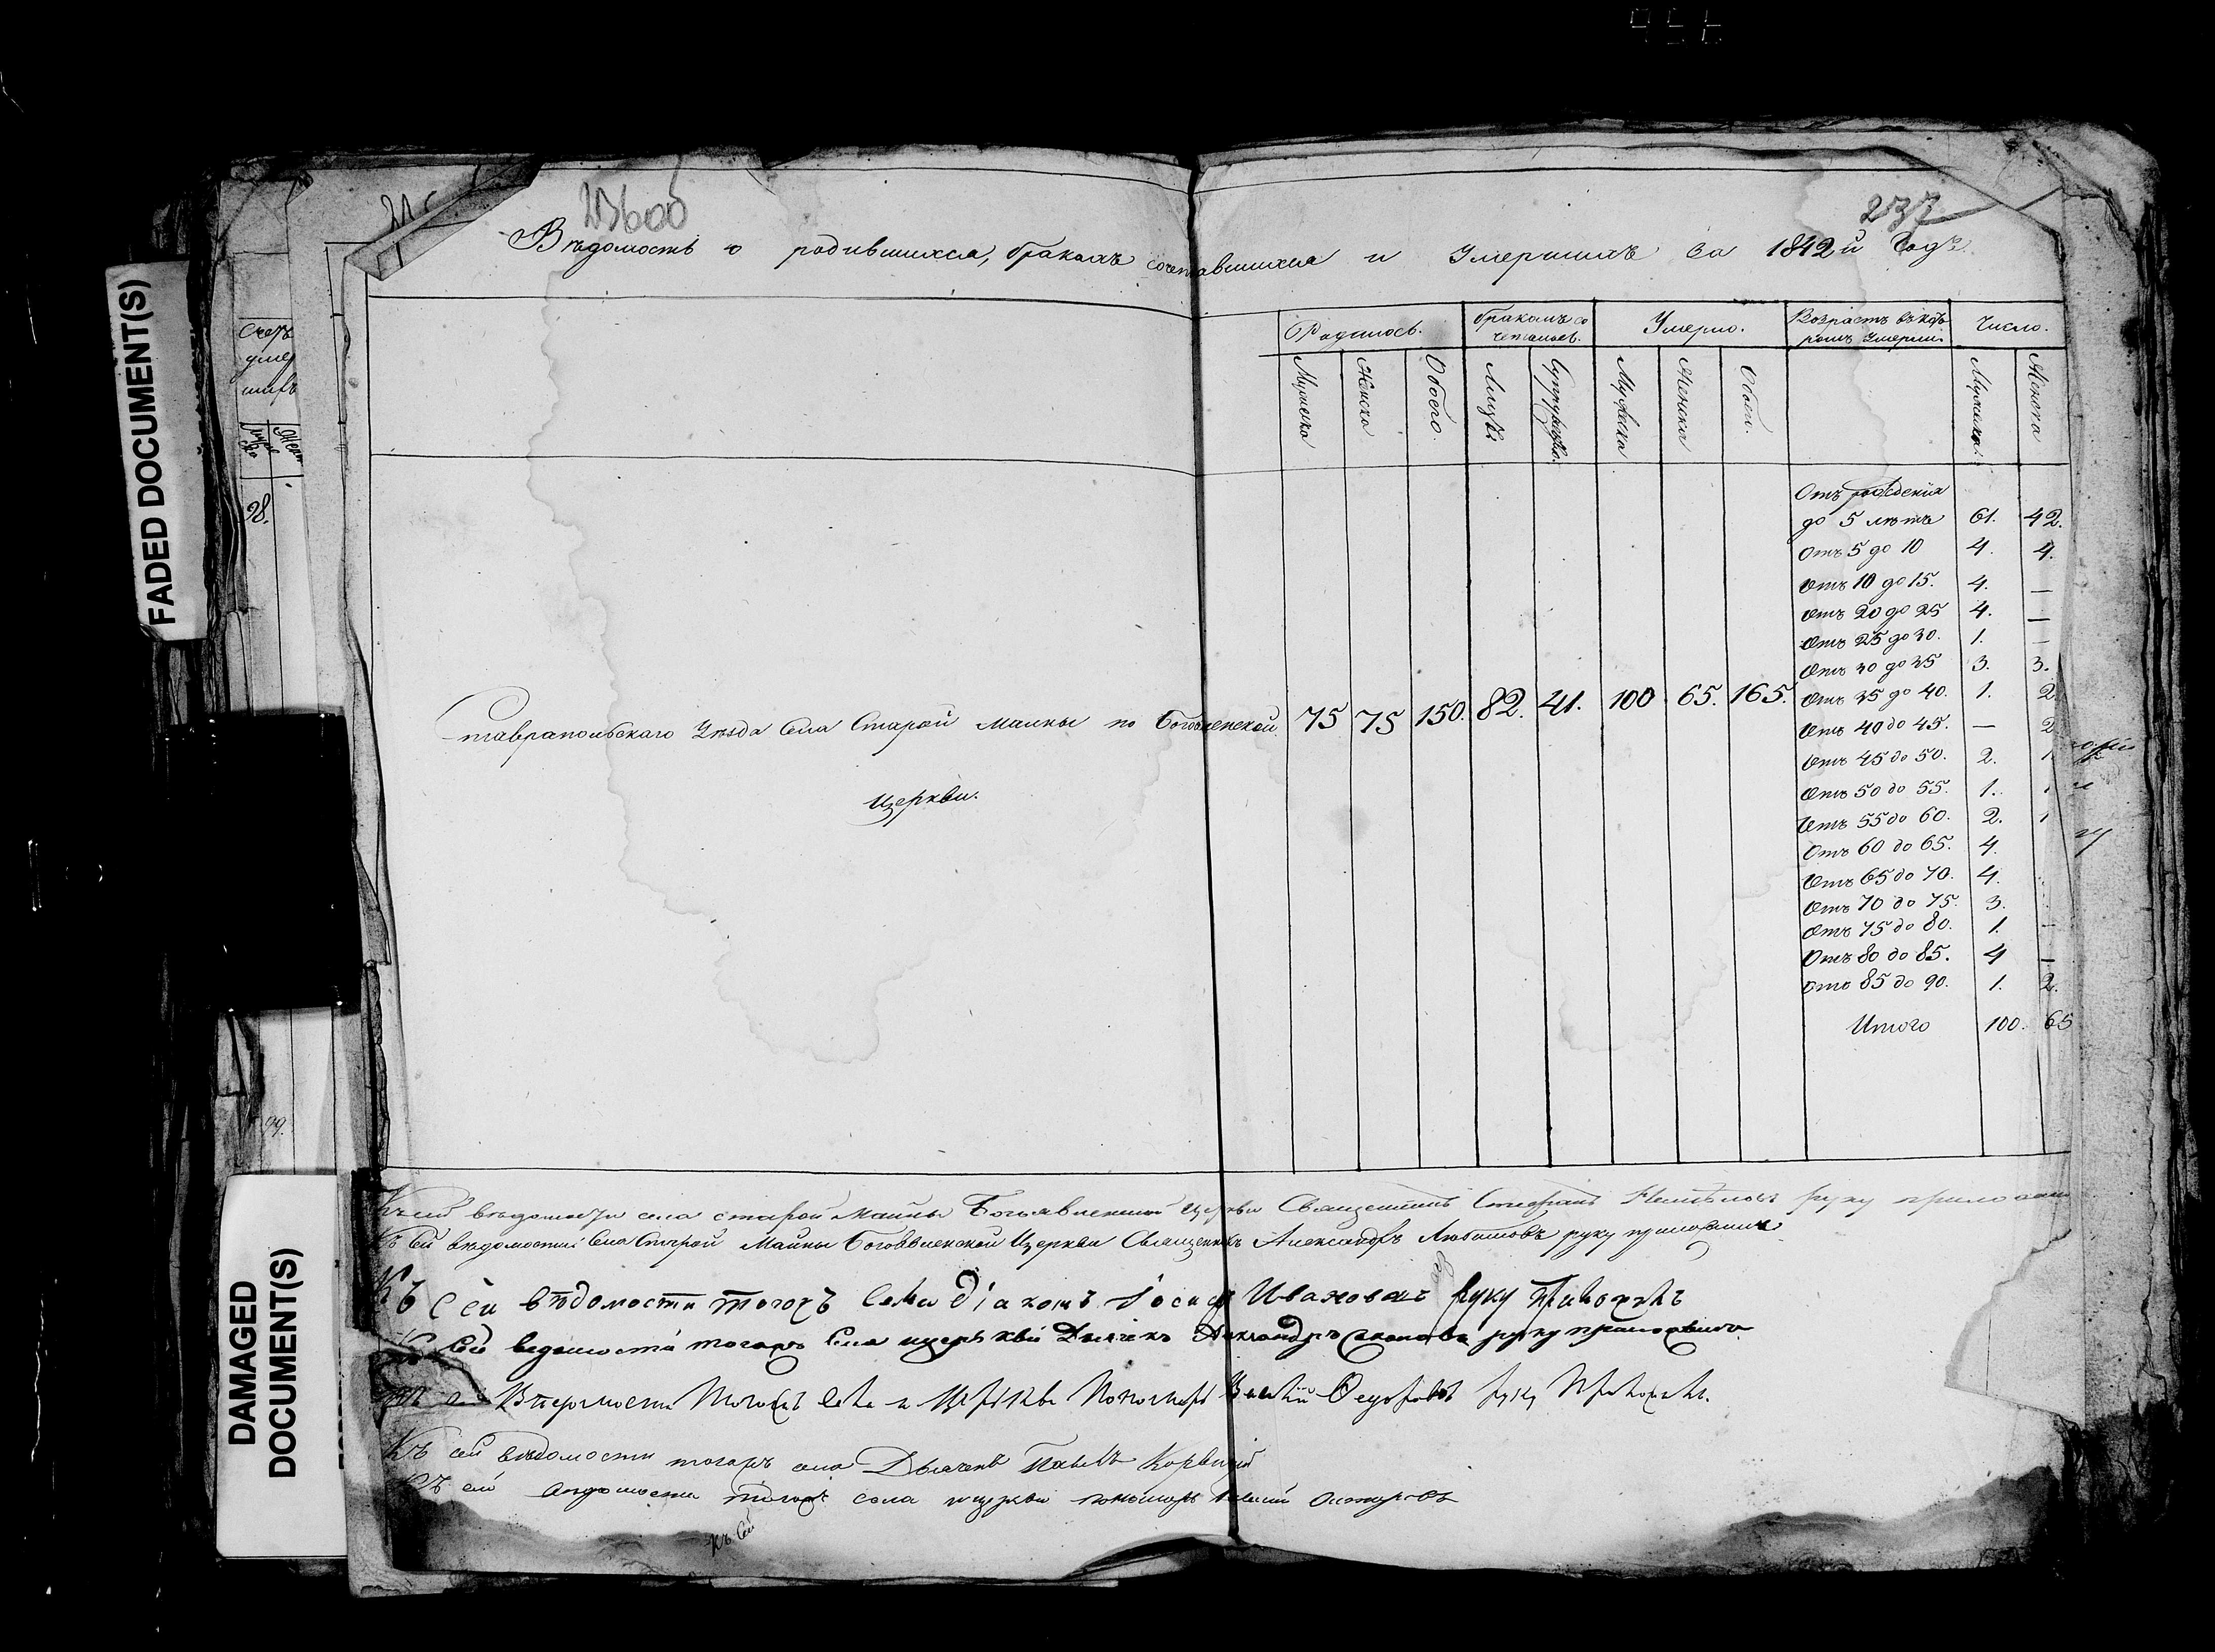 237
Вѣдомость о родившихся, бракомъ сочетавшихся и Умершихъ за 1842й Годъ.
Родилось. бракомъ со Умерло. Возрастъ въ кото Число.
четались. ромъ Умерли
Мужеска Женска Обоего. Лицъ Супружес. Мужеска Женска Обоего. Мужеска. Женска
Отъ рожденія
до 5 лѣтъ 61. 42.
Отъ 5 до 10 4. 4.
Отъ 10 до 15. 4. —
Отъ 20 до 25 4. —
Отъ 25 до 30. 1. —
Отъ 30 до 35 3. 3.
Ставрапольскаго Уѣзда Села Старой Маины по Богоявленской 75 75 150. 82. 41. 100 65. 165. Отъ 35 до 40. 1. 2
Церкви.
Отъ 40 до 45. — 2
Отъ 45 до 50. 2. 1
Отъ 50 до 55. 1. 1
Отъ 55 до 60. 2. 1
Отъ 60 до 65. 4.
Отъ 65 до 70. 4.
Отъ 70 до 75. 3.
Отъ 75 до 80. 1. —
Отъ 80 до 85. 4 —
Отъ 85 до 90. 1. 2.
Итого 100. 65
Къ сей вѣдомости села старой Маины Богоявленской церкви Священникъ Стефанъ руку приложилъ
Къ Сей вѣдомости Села Старой Маины Богоявленской Церкви Священникъ Александръ руку приложилъ
Къ Сеи вѣдомости тогожъ Села діаконъ Іосифъ Ивановъ руку Приложилъ
Къ Сей ведомости тогожъ Села церькви Дьячекъ Александръ руку приложилъ
Къ сей Вѣдомости Тогожъ Села и Церкви Пономарь Василій Федоровъ руку Приложилъ.
Къ сей вѣдомости тогожъ села Дьячекъ Павелъ
Къ сей вѣдомости тогожъ села и церкви пономарь
Къ Сей
98.
99.
FADED DOCUMENT(S)
DAMAGED
DOCUMENT(S)